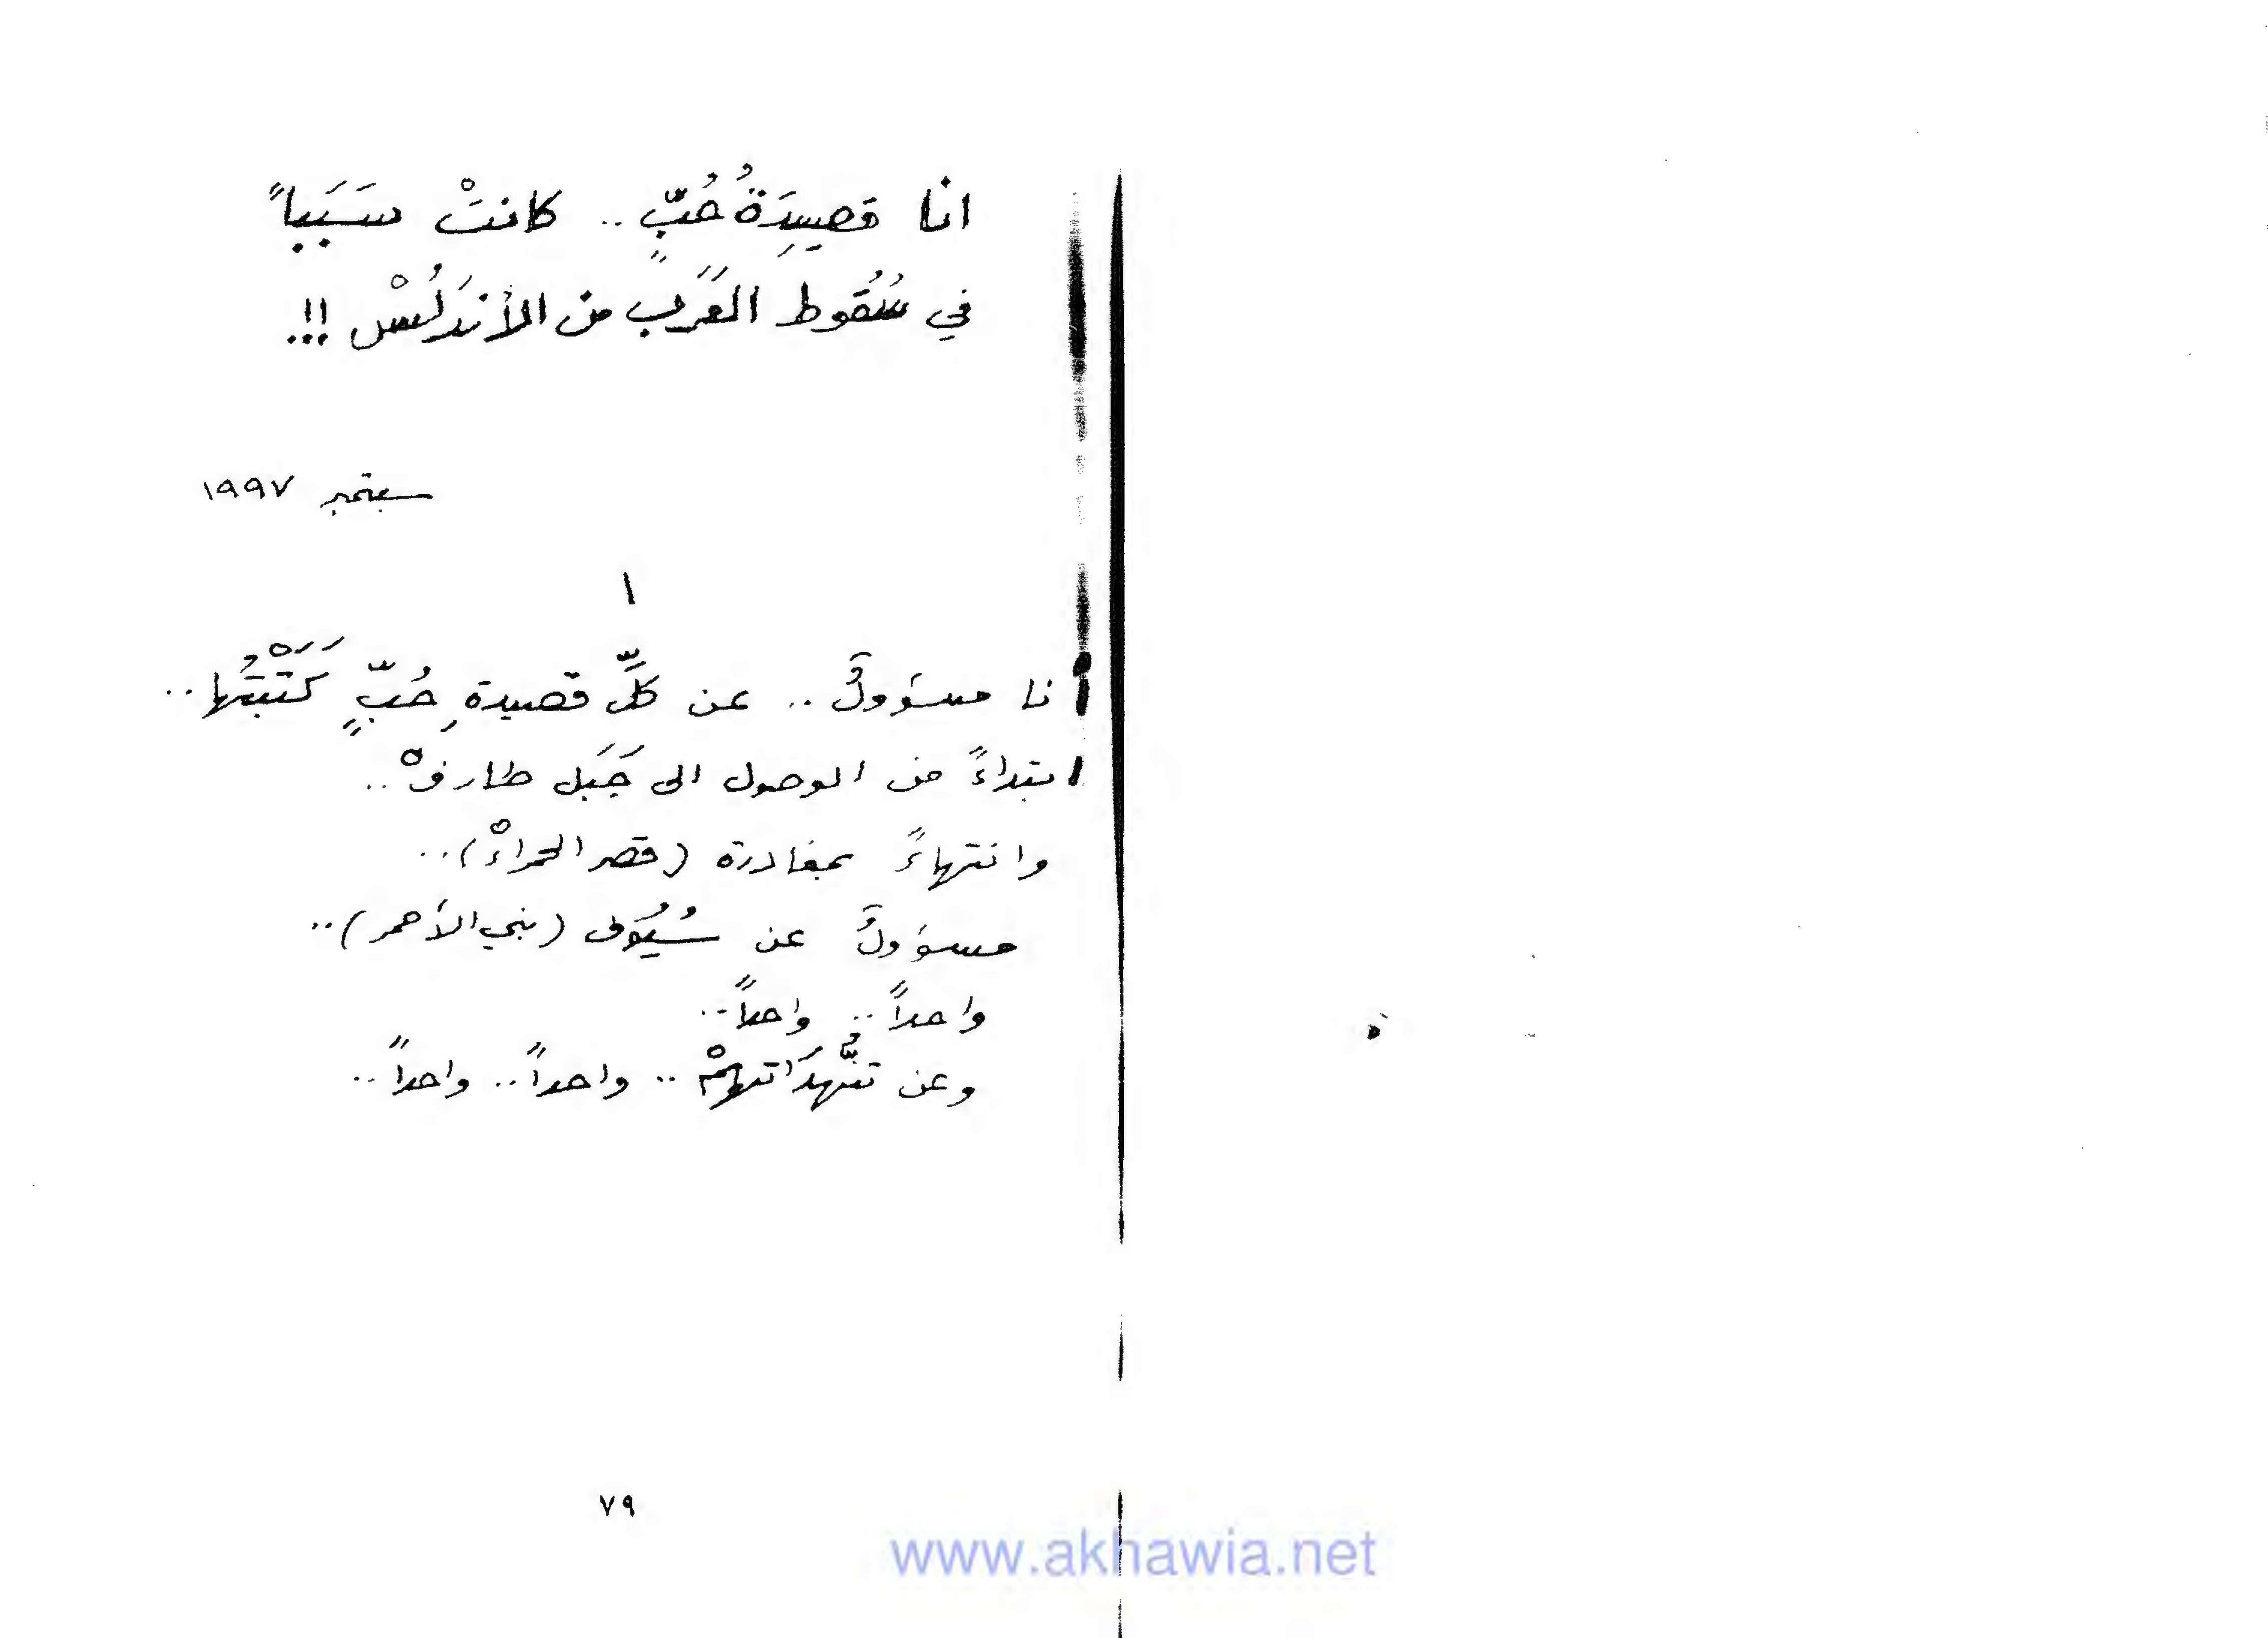 انا قصيدَةُ حُبٍّ .. كانتْ سَبَباً
في سُقوط العَرَب من الأندَلُسْ !!.
سبتمبر ١٩٩٧
١
أنا مسؤولٌ .. عن كلِّ قصيدةِ حُبٍّ كَتَبْتُها ..
ابتداءً من الوصول الى جَبَل طارقْ ..
وانتهاءً بمغادرة (قصر الحمراءْ) ..
مسؤولٌ عن سُيُوف (بني الأحمر) ..
واحداً .. واحداً ..
وعن تنهُّدَاتهمْ .. واحداً .. واحداً ..
٧٩
www.akhawia.net